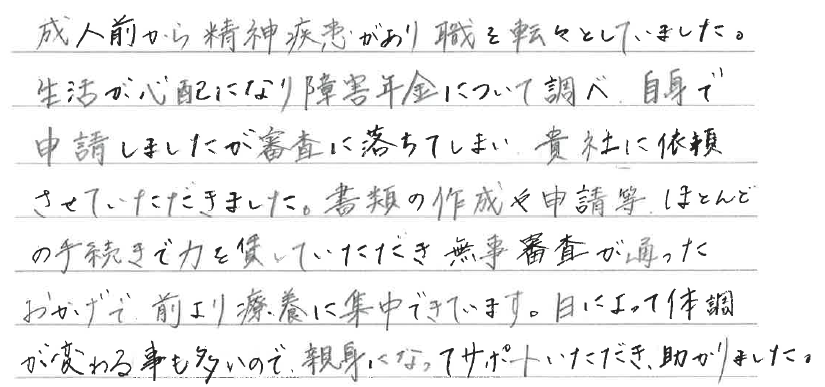 成人前から精神疾患があり職を転々としていました。
生活が心配になり障害年金について調べ、自身で
申請しましたが審査に落ちてしまい、貴社に依頼
させていただきました。書類の作成や申請等、ほとんど
の手続きで力を貸していただき無事審査が通った
おかげで、前より療養に集中できています。日によって体調
が変わる事も多いので、親身になってサポートいただき、助かりました。